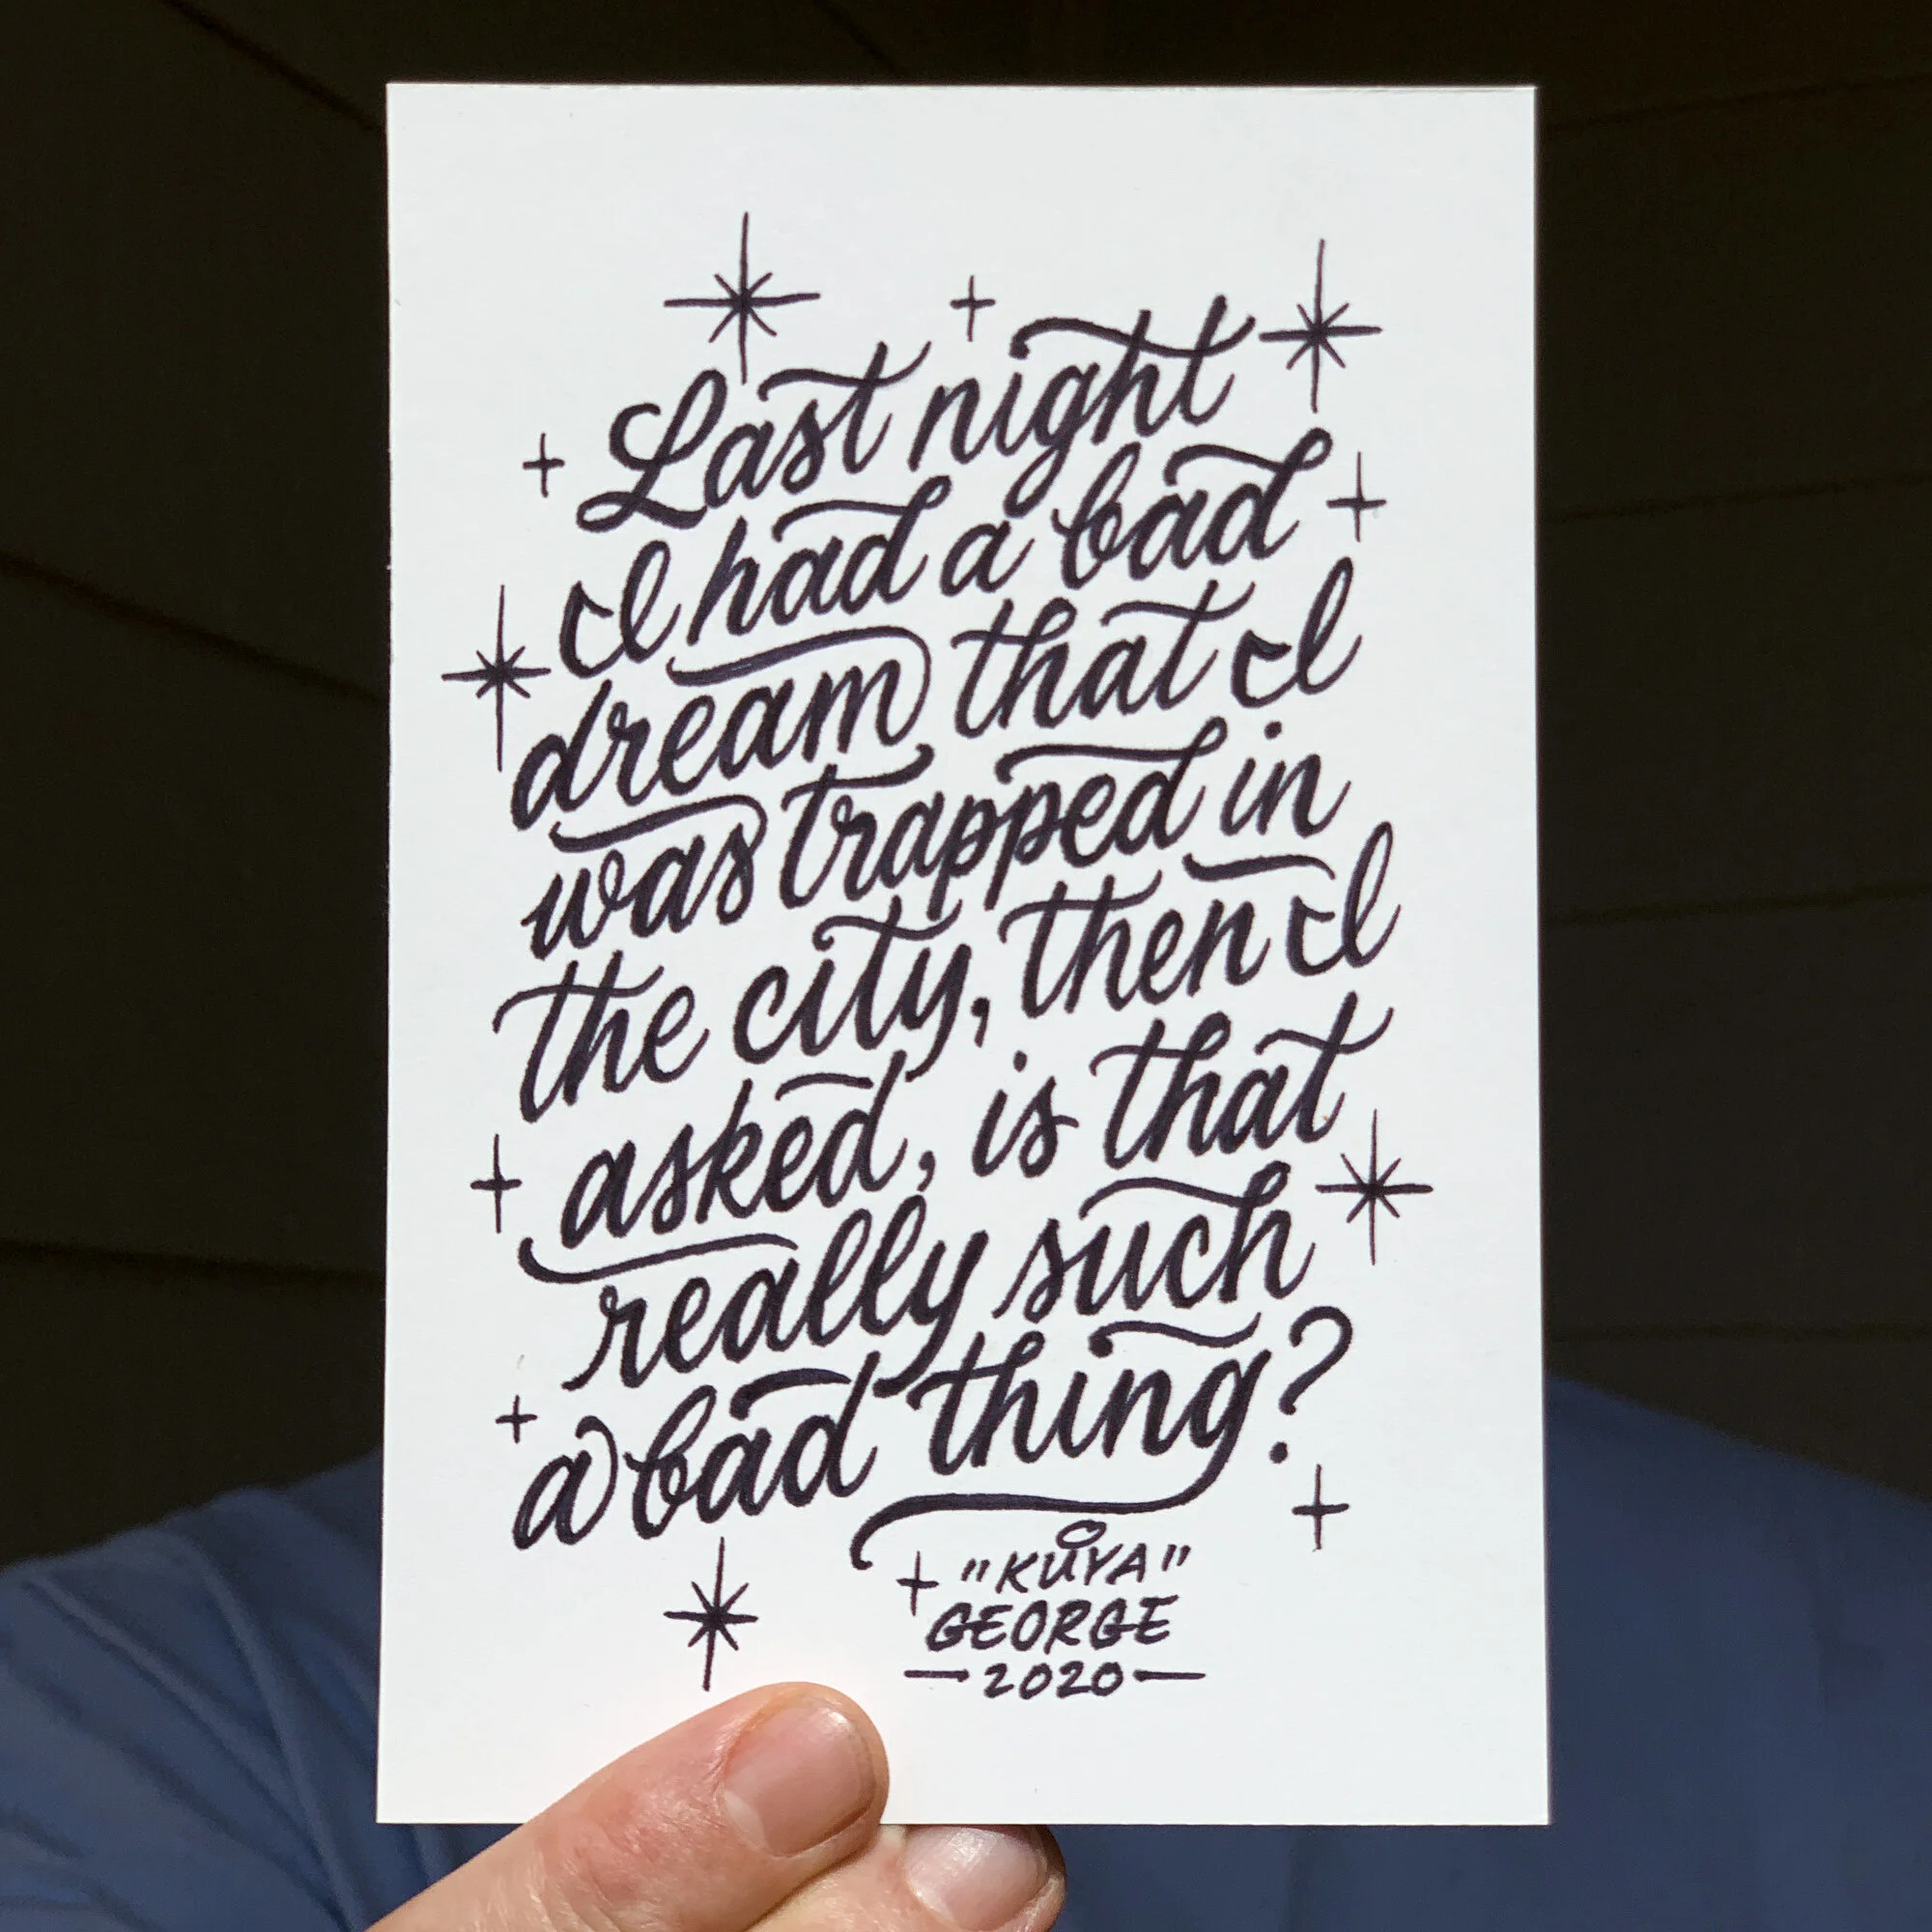 Last night
I had a bad
dream that I
was trapped in
the city, then I
asked, is that
really such
a bad thing?
"KUYA"
GEORGE
—2020—